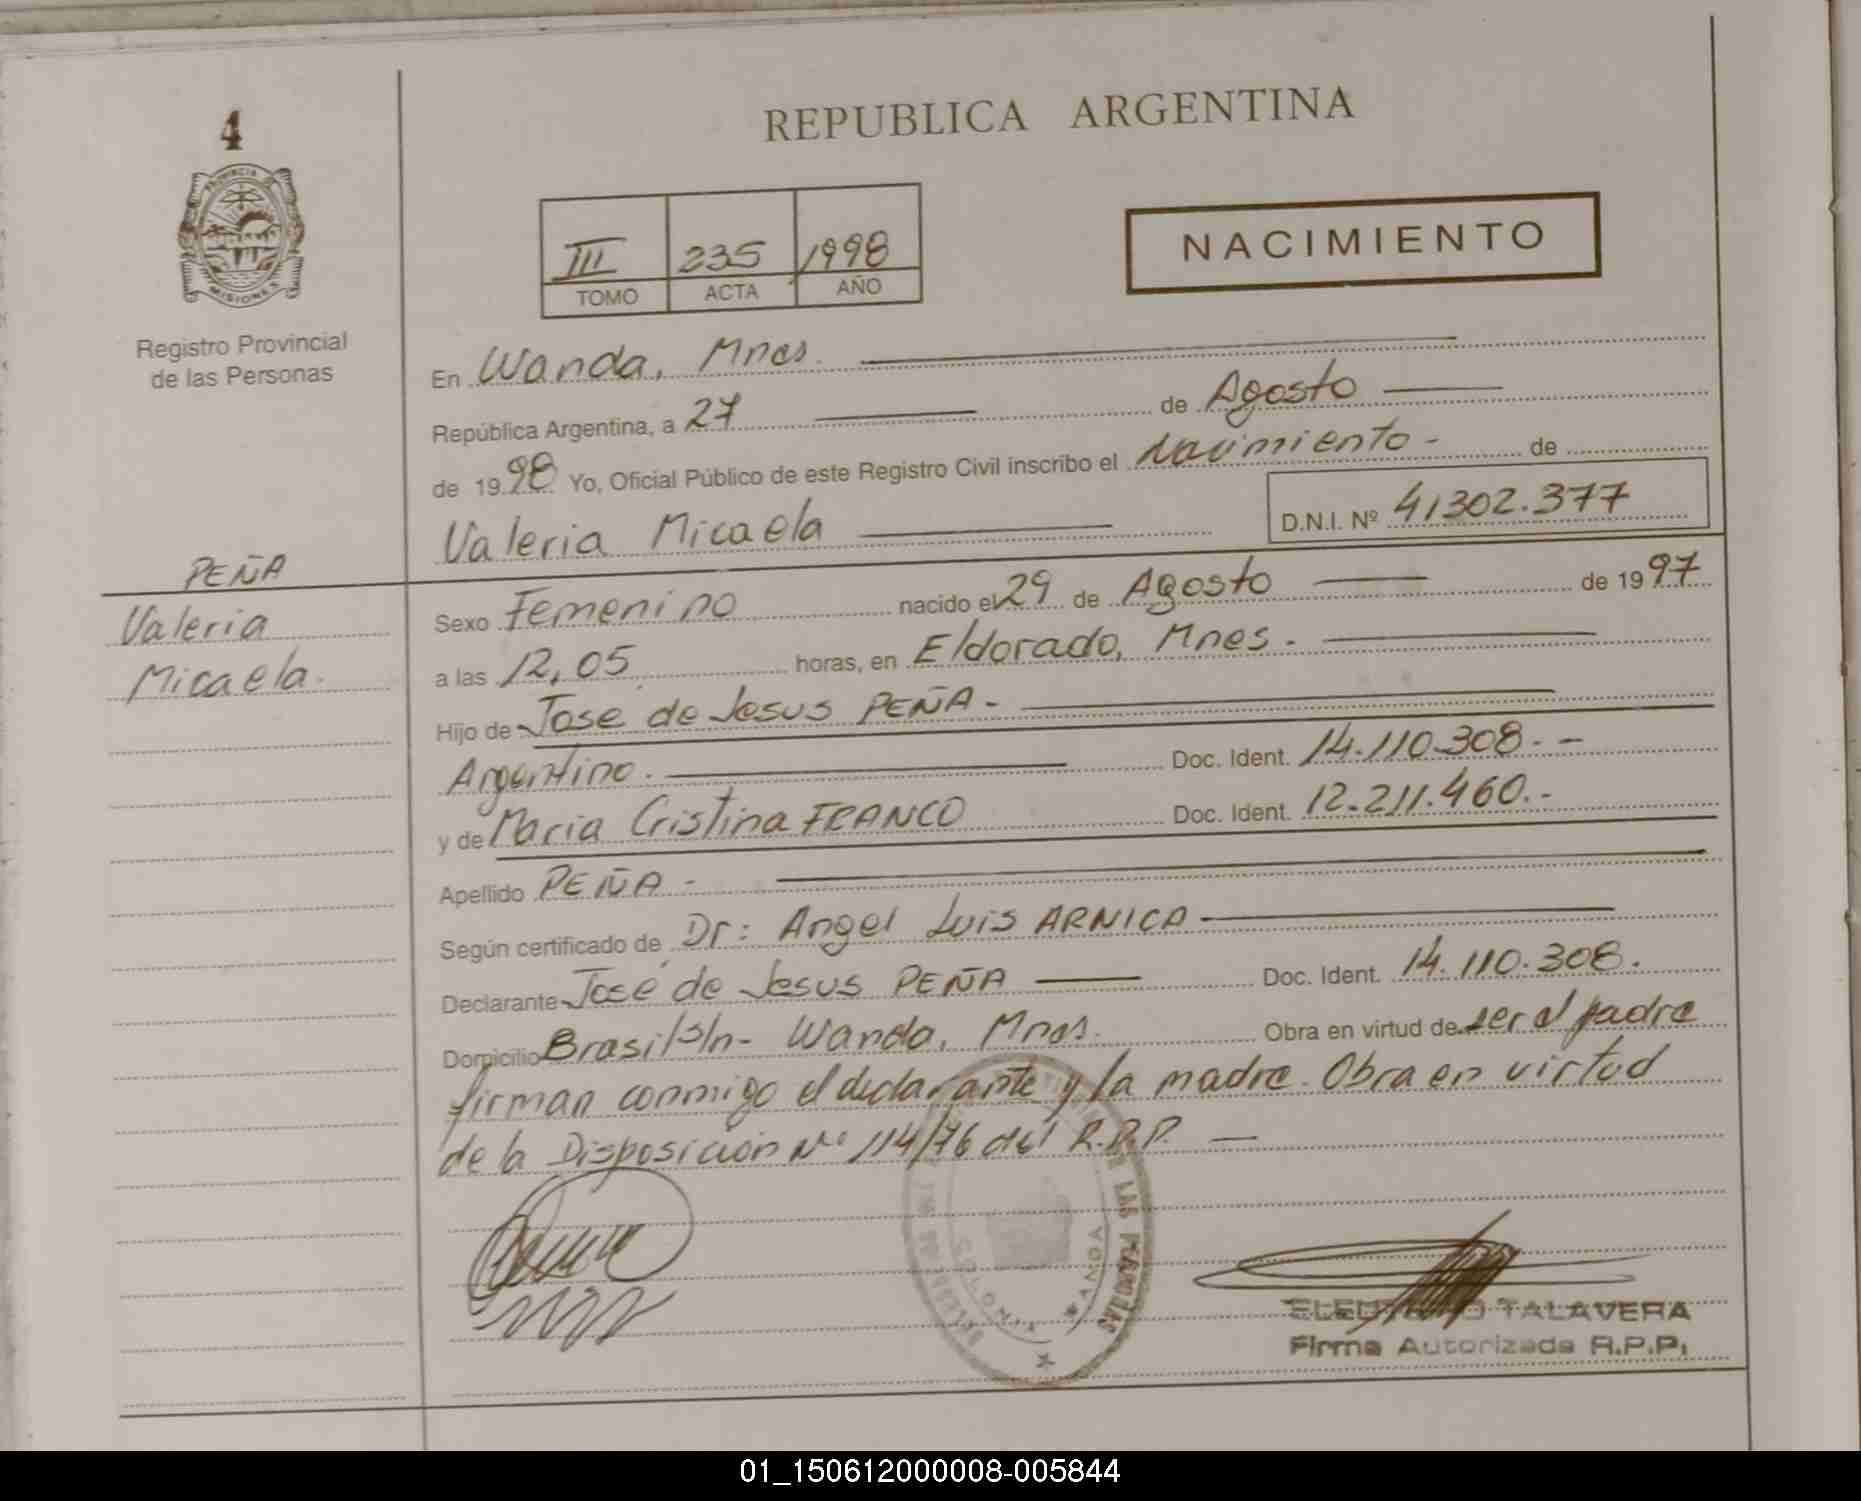 4
PROVINCIA DE
MISIONES
Registro Provincial
de las Personas
REPUBLICA ARGENTINA
III 235 1998
TOMO ACTA AÑO
NACIMIENTO
En Wanda, Mnes.
República Argentina, a 27 de Agosto
de 1998 Yo, Oficial Público de este Registro Civil inscribo el Nacimiento - de
Valeria Micaela D.N.I. Nº 41302.377
PEÑA
Valeria
Micaela.
Sexo Femenino nacido el 29 de Agosto de 1997
a las 12,05 horas, en Eldorado, Mnes.-
Hijo de José de Jesus PEÑA.-
Argentino. Doc. Ident. 14.110.308.--
y de Maria Cristina FRANCO Doc. Ident. 12.211.460.-
Apellido PEÑA -
Según certificado de Dr: Angel Luis ARNICA
Declarante José de Jesus PEÑA Doc. Ident. 14.110.308.
Domicilio Brasil s/n- Wanda, Mnes. Obra en virtud de ser el padre
firman conmigo el declarante y la madre. Obra en virtud
de la Disposición Nº 114/76 del R.P.P.
DE LAS PERSONAS
COLONIA WANDA
TALAVERA
Firma Autorizada R.P.P.
01_150612000008-005844